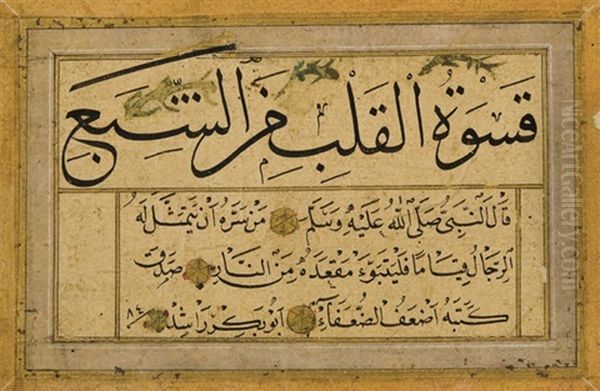 قَسْوَةُ الْقَلْبِ مِنَ الشَّبَعِ
قَالَ النَّبِيُّ صَلَّى اللّٰهُ عَلَيْهِ وَسَلَّمَ مَنْ سَرَّهُ أَنْ يَتَمَثَّلَ لَهُ
الرِّجَالُ قِيَامًا فَلْيَتَبَوَّءْ مَقْعَدَهُ مِنَ النَّارِ صَدَقَ
كَتَبَهُ أَضْعَفُ الضُّعَفَاءِ أَبُو بَكِرْ رَاشِدْ